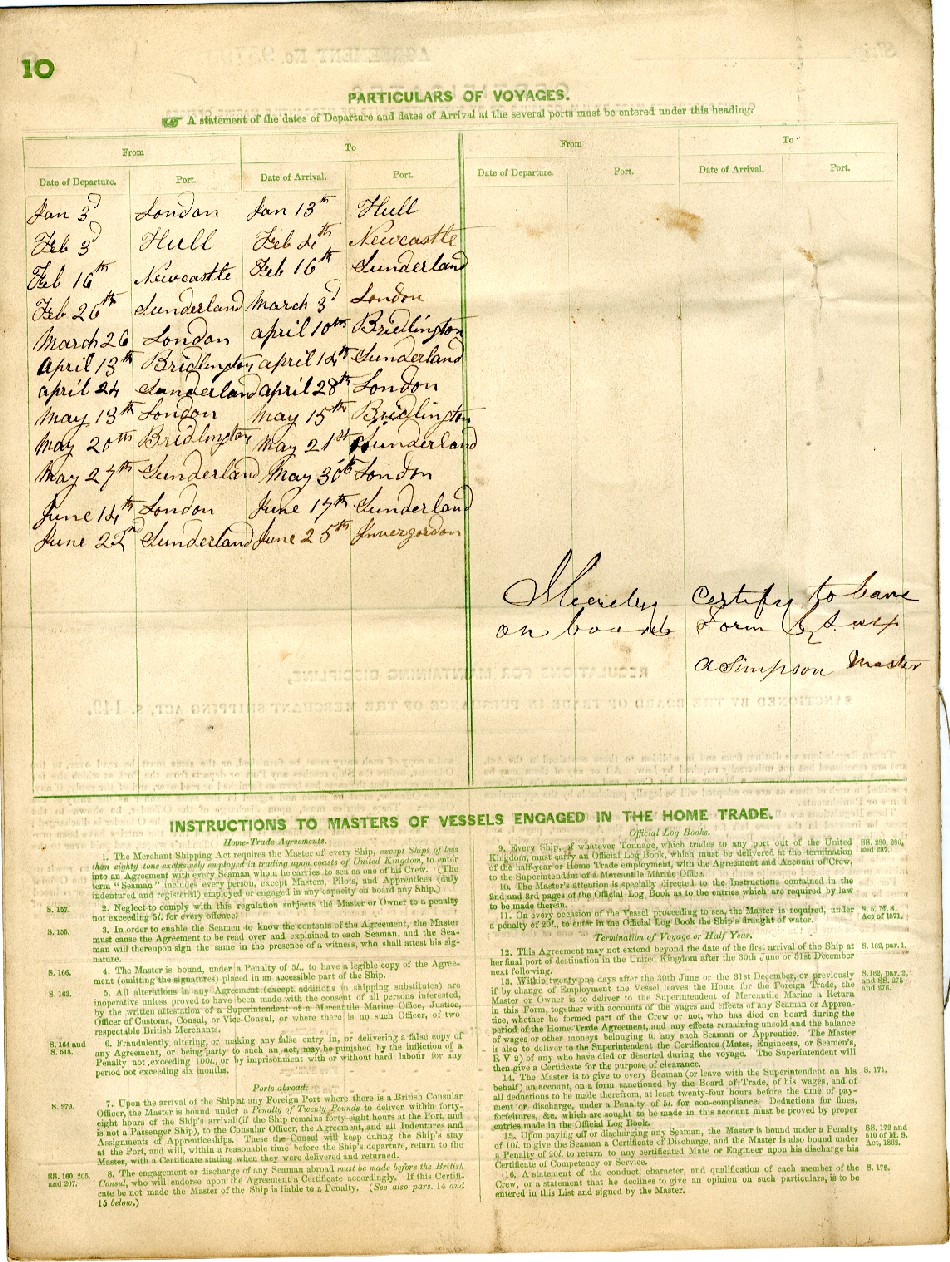 10
PARTICULARS OF VOYAGES.
A statement of the dates of Departure and dates of Arrival at the several ports must be entered under this heading.
From To From To
Date of Departure. Port. Date of Arrival. Port. Date of Departure. Port. Date of Arrival. Port.
Jan 3d London Jan 13th Hull
Feb 3d Hull Feb 4th Newcastle
Feb 16th Newcastle Feb 16th Sunderland
Feb 26th Sunderland March 3d London
March 26 London april 10th Bridlington
april 13th Bridlington april 14th Sunderland
april 24 Sunderland april 28th London
May 13th London May 15th Bridlington
May 20th Bridlington May 21st Sunderland
May 27th Sunderland May 30th London
June 14th London June 17th Sunderland
June 22nd Sunderland June 25th Invergordon
certify to have
on board Form
a Simpson Master
INSTRUCTIONS TO MASTERS OF VESSELS ENGAGED IN THE HOME TRADE.
Home-Trade Agreements.
1. The Merchant Shipping Act requires the Master of every Ship, except Ships of less
than eighty tons exclusively employed in trading upon coasts of United Kingdom, to enter
into an Agreement with every Seaman whom he carries to sea as one of his Crew. (The
term "Seaman" includes every person, except Masters, Pilots, and Apprentices (duly
indentured and registered) employed or engaged in any capacity on board any Ship.)
S. 157.
2. Neglect to comply with this regulation subjects the Master or Owner to a penalty
not exceeding 5l. for every offence.
S. 155.
3. In order to enable the Seamen to know the contents of the Agreement, the Master
must cause the Agreement to be read over and explained to each Seaman, and the Sea-
man will thereupon sign the same in the presence of a witness, who shall attest his sig-
nature.
S. 166.
4. The Master is bound, under a Penalty of 5l., to have a legible copy of the Agree-
ment (omitting the signatures) placed in an accessible part of the Ship.
S. 163.
5. All alterations in any Agreement (except additions in shipping substitutes) are
inoperative unless proved to have been made with the consent of all persons interested,
by the written attestation of a Superintendent of a Mercantile Marine Office, Justice,
Officer of Customs, Consul, or Vice-Consul, or where there is no such Officer, of two
respectable British Merchants.
S. 164 and
6. Fraudulently, altering, or making any false entry in, or delivering a false copy of
any Agreement, or being party to such an act, may be punished by the infliction of a
Penalty not exceeding 100l., or by imprisonment with or without hard labour for any
period not exceeding six months.
Ports abroad.
S. 279.
7. Upon the arrival of the Ship at any Foreign Port where there is a British Consular
Officer, the Master is bound under a Penalty of Twenty Pounds to deliver within forty-
eight hours of the Ship's arrival (if the Ship remains forty-eight hours at the Port, and
is not a Passenger Ship), to the Consular Officer, the Agreement, and all Indentures and
Assignments of Apprenticeships. These the Consul will keep during the Ship's stay
at the Port, and will, within a reasonable time before the Ship's departure, return to the
Master, with a Certificate stating when they were delivered and returned.
SS. 160, 205,
and 207.
8. The engagement or discharge of any Seaman abroad must be made before the British
Consul, who will endorse upon the Agreement a Certificate accordingly. If this Certifi-
cate be not made the Master of the Ship is liable to a Penalty. (See also pars. 14 and
15 below.)
Official Log Books.
9. Every Ship, of whatever Tonnage, which trades to any port out of the United
Kingdom, must carry an Official Log Book, which must be delivered at the termination
of the half-year of Home Trade employment, with the Agreement and Account of Crew,
to the Superintendent of a Mercantile Marine Office.
10. The Master's attention is specially directed to the Instructions contained in the
2nd and 3rd pages of the Official Log Book as to the entries which are required by law
to be made therein.
11. On every occasion of the Vessel proceeding to sea, the Master is required, under
a penalty of 20l., to enter in the Official Log Book the Ship's draught of water.
Act of 1871.
Termination of Voyage or Half Year.
12. This Agreement may not extend beyond the date of the first arrival of the Ship at
her final port of destination in the United Kingdom after the 30th June or 31st December
next following.
S. 162, par. 1.
13. Within twenty-one days after the 30th June or the 31st December, or previously
if by change of Employment the Vessel leaves the Home for the Foreign Trade, the
Master or Owner is to deliver to the Superintendent of Mercantile Marine a Return
in this Form, together with accounts of the wages and effects of any Seaman or Appren-
tice, whether he formed part of the Crew or not, who has died on board during the
period of the Home Trade Agreement, and any effects remaining unsold and the balance
of wages or other moneys belonging to any such Seaman or Apprentice. The Master
is also to deliver to the Superintendent the Certificates (Mates, Engineers, or Seamen's,
E V 2) of any who have died or deserted during the voyage. The Superintendent will
then give a Certificate for the purpose of clearance.
S. 162, par. 2,
14. The Master is to give to every Seaman (or leave with the Superintendent on his
behalf) an account, on a form sanctioned by the Board of Trade, of his wages, and of
all deductions to be made therefrom, at least twenty-four hours before the time of pay-
ment or discharge, under a Penalty of 5l. for non-compliance. Deductions for fines,
forfeitures, &c. which are sought to be made in this account must be proved by proper
entries made in the Official Log Book.
S. 171.
15. Upon paying off or discharging any Seaman, the Master is bound under a Penalty
of 10l. to give the Seaman a Certificate of Discharge, and the Master is also bound under
a Penalty of 20l. to return to any certificated Mate or Engineer upon his discharge his
Certificate of Competency or Service.
SS. 172 and
16. A statement of the conduct, character, and qualification of each member of the
Crew, or a statement that he declines to give an opinion on such particulars, is to be
entered in this List and signed by the Master.
S. 176.